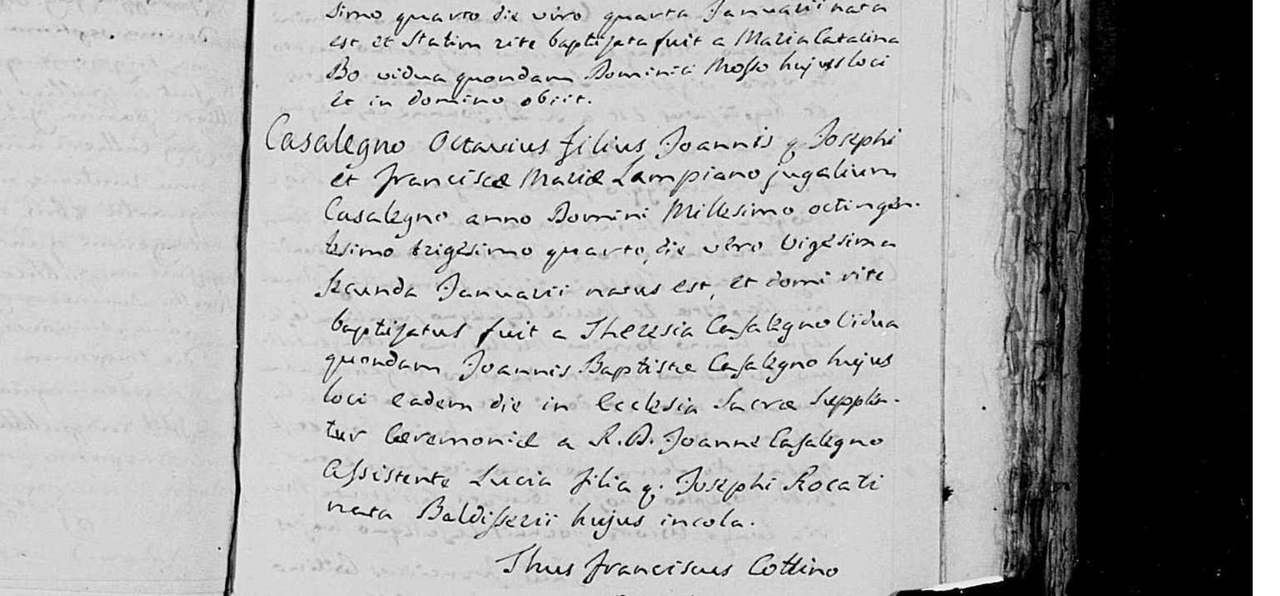 simo quarto die vero quarta Januarii nata
est et statim rite baptizata fuit a Maria Catalina
Bo vidua quondam Dominici Mosso hujus loci
et in domino obiit.
Casalegno Octavius filius Joannis q. Josephi
et Franciscæ Mariæ Lampiano jugalium
Casalegno anno Domini Millesimo octingen-
tesimo trigesimo quarto, die vero vigesima
secunda Januarii natus est, et domi rite
baptizatus fuit a Theresia Casalegno vidua
quondam Joannis Baptistæ Casalegno hujus
loci eadem die in Ecclesia Sacræ supplen-
tur Ceremoniæ a R. D. Joanne Casalegno
Assistente Lucia filia q. Josephi Rocati
nata Baldisserii hujus incola.
Thus Franciscus Cottino